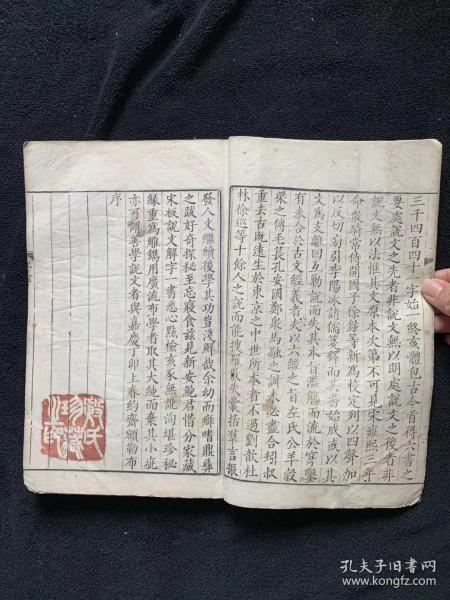 三千四百四十一字始一終亥體包古今首得六書之
要處說文之先者非說文無以明處說文之後者非
說文無以法惟其文原本次第不可見宋雍熙三年
命散騎常侍開國子徐鉉等新為校定列以四聲加
以反切旁引李陽冰諸儒箋釋而其書始成或以其
文為支離回互勒說而失其本旨濫觴而流於穿鑿
有未合於古文經義者夫以六經之旨左氏公羊穀
梁之傳毛長孔安國鄭眾馬融之訓未必盡合矧叔
重去古既遠生於東京之中世所本者不過劉歆杜
林徐巡等十餘人之說而能搜羅散失囊括羣言振
發人文繼續後學其功豈淺鮮哉余幼而癖嗜鼎彝
之跋好奇探秘至忘寢食茲見新安鮑君惜分家藏
宋板說文解字一書悉心點檢亥豕無訛洵堪珍秘
緣重為雕鐫用廣流布學者取其大純而棄其小疵
亦可謂善學說文者與嘉慶丁卯上春約齋額勒布
序
孔夫子旧书网
www.kongfz.com